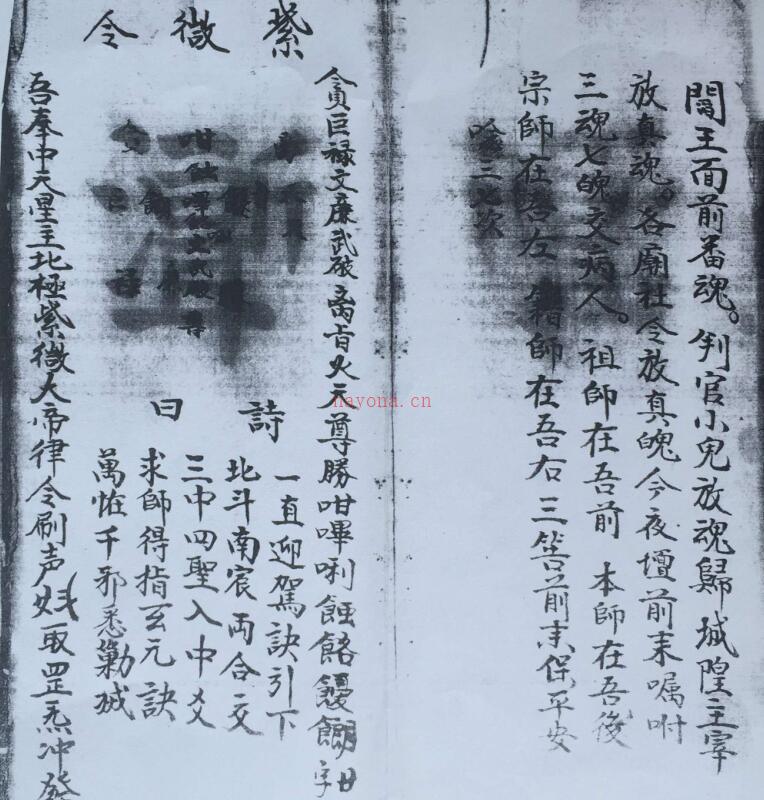 閻王面前番魂。判官小鬼放魂歸城隍主宰
放真魂。各廟社令放真魄今夜壇前来囑咐
三魂七魄交病人。祖師在吾前 本師在吾後
宗師在吾左 籍師在吾右 三答前来保平安
三七次
紫微令
貪巨禄文廉武破 天尊勝咁嗶唎蝕餎饅餬甘字
詩曰
一直迎駕訣引下
北斗南宸両合交
三中四聖入中爻
求師得指玄元訣
萬怪千邪悉勦滅
吾奉中天星主北極紫微大帝律令刷声 取罡炁冲發
nayona.cn